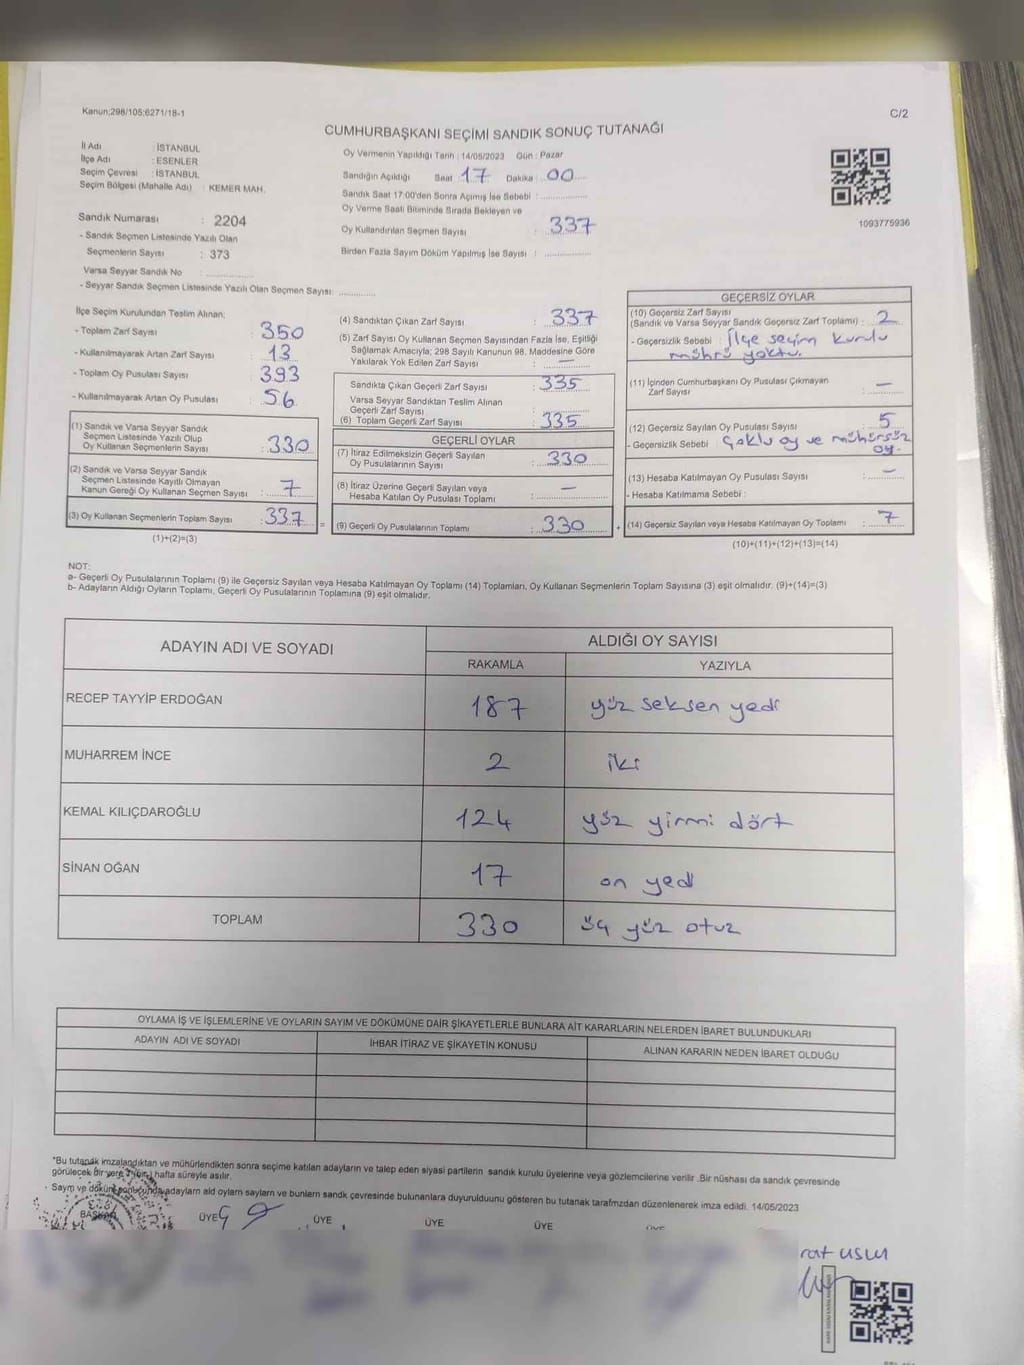 Kanun;298/105;6271/18-1
C/2
CUMHURBAŞKANI SEÇİMİ SANDIK SONUÇ TUTANAĞI
İl Adı : İSTANBUL
İlçe Adı : ESENLER
Seçim Çevresi : İSTANBUL
Seçim Bölgesi (Mahalle Adı) : KEMER MAH.
Oy Vermenin Yapıldığı Tarih : 14/05/2023 Gün : Pazar
Sandığın Açıldığı Saat 17 Dakika 00
Sandık Saat 17:00'den Sonra Açımış İse Sebebi :
Oy Verme Saati Bitiminde Sırada Bekleyen ve
Oy Kullandırılan Seçmen Sayısı : 337
Birden Fazla Sayım Döküm Yapılmış İse Sayısı :
1093775936
Sandık Numarası : 2204
- Sandık Seçmen Listesinde Yazılı Olan
Seçmenlerin Sayısı : 373
Varsa Seyyar Sandık No :
- Seyyar Sandık Seçmen Listesinde Yazılı Olan Seçmen Sayısı:
İlçe Seçim Kurulundan Teslim Alınan;
- Toplam Zarf Sayısı : 350
- Kullanılmayarak Artan Zarf Sayısı : 13
- Toplam Oy Pusulası Sayısı : 393
- Kullanılmayarak Artan Oy Pusulası : 56
(1) Sandık ve Varsa Seyyar Sandık
Seçmen Listesinde Yazılı Olup
Oy Kullanan Seçmenlerin Sayısı : 330
(2) Sandık ve Varsa Seyyar Sandık
Seçmen Listesinde Kayıtlı Olmayan
Kanun Gereği Oy Kullanan Seçmen Sayısı : 7
(3) Oy Kullanan Seçmenlerin Toplam Sayısı : 337 =
(1)+(2)=(3)
(4) Sandıktan Çıkan Zarf Sayısı : 337
(5) Zarf Sayısı Oy Kullanan Seçmen Sayısından Fazla İse, Eşitliği
Sağlamak Amacıyla; 298 Sayılı Kanunun 98. Maddesine Göre
Yakılarak Yok Edilen Zarf Sayısı : —
Sandıkta Çıkan Geçerli Zarf Sayısı : 335
Varsa Seyyar Sandıktan Teslim Alınan
Geçerli Zarf Sayısı :
(6) Toplam Geçerli Zarf Sayısı : 335
GEÇERLİ OYLAR
(7) İtiraz Edilmeksizin Geçerli Sayılan
Oy Pusulalarının Sayısı : 330
(8) İtiraz Üzerine Geçerli Sayılan veya
Hesaba Katılan Oy Pusulası Toplamı : —
(9) Geçerli Oy Pusulalarının Toplamı : 330 +
GEÇERSİZ OYLAR
(10) Geçersiz Zarf Sayısı
(Sandık ve Varsa Seyyar Sandık Geçersiz Zarf Toplamı) : 2
- Geçersizlik Sebebi : İlçe seçim kurulu
mührü yoktu.
(11) İçinden Cumhurbaşkanı Oy Pusulası Çıkmayan
Zarf Sayısı : —
(12) Geçersiz Sayılan Oy Pusulası Sayısı : 5
- Geçersizlik Sebebi : Çoklu oy ve mühürsüz
oy.
(13) Hesaba Katılmayan Oy Pusulası Sayısı : —
- Hesaba Katılmama Sebebi :
(14) Geçersiz Sayılan veya Hesaba Katılmayan Oy Toplamı : 7
(10)+(11)+(12)+(13)=(14)
NOT:
a- Geçerli Oy Pusulalarının Toplamı (9) ile Geçersiz Sayılan veya Hesaba Katılmayan Oy Toplamı (14) Toplamları, Oy Kullanan Seçmenlerin Toplam Sayısına (3) eşit olmalıdır. (9)+(14)=(3)
b- Adayların Aldığı Oyların Toplamı, Geçerli Oy Pusulalarının Toplamına (9) eşit olmalıdır.
ADAYIN ADI VE SOYADI
ALDIĞI OY SAYISI
RAKAMLA YAZIYLA
RECEP TAYYİP ERDOĞAN 187 yüz seksen yedi
MUHARREM İNCE 2 iki
KEMAL KILIÇDAROĞLU 124 yüz yirmi dört
SİNAN OĞAN 17 on yedi
TOPLAM 330 üç yüz otuz
OYLAMA İŞ VE İŞLEMLERİNE VE OYLARIN SAYIM VE DÖKÜMÜNE DAİR ŞİKAYETLERLE BUNLARA AİT KARARLARIN NELERDEN İBARET BULUNDUKLARI
ADAYIN ADI VE SOYADI İHBAR İTİRAZ VE ŞİKAYETİN KONUSU ALINAN KARARIN NEDEN İBARET OLDUĞU
*Bu tutanak imzalandıktan ve mühürlendikten sonra seçime katılan adayların ve talep eden siyasi partilerin sandık kurulu üyelerine veya gözlemcilerine verilir .Bir nüshası da sandık çevresinde
görülecek bir yere 1 (bir) hafta süreyle asılır.
Sayım ve döküm sonucunda adayların ald oyların sayları ve bunların sandk çevresinde bulunanlara duyurulduunu gösteren bu tutanak tarafmzdan düzenlenerek imza edildi. 14/05/2023
BAŞKAN ÜYE ÜYE ÜYE ÜYE